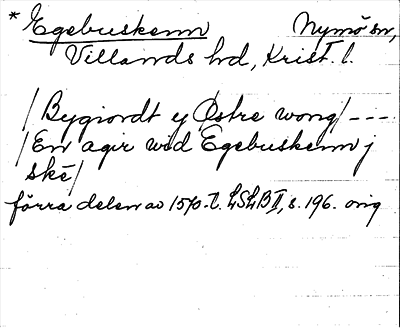 * Egebuskenn Nymö sn,
Villands hd, Krist. l.
/ Bygiordt y Østre wong / ---
/ En agir wid Egebuskenn j
skē /
förra delen av 1570-t. LSLB II, s. 196. orig